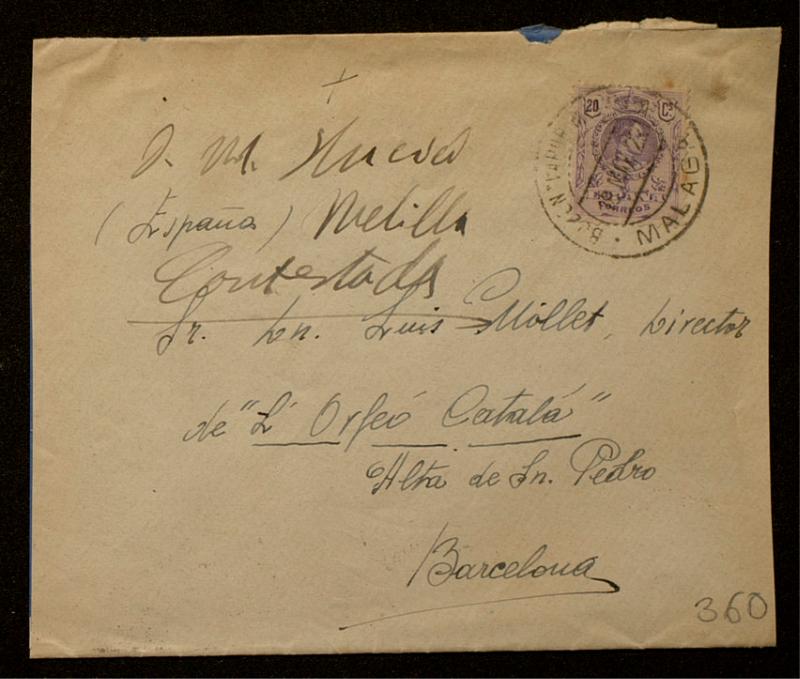 D. M. Nueva
(España) Melilla
Contestada
Sr. Dn. Luis Millet, Director
de "L' Orfeó Catalá"
Alta de Sn. Pedro
Barcelona
20 Cs
CORREOS
MALAGA
360